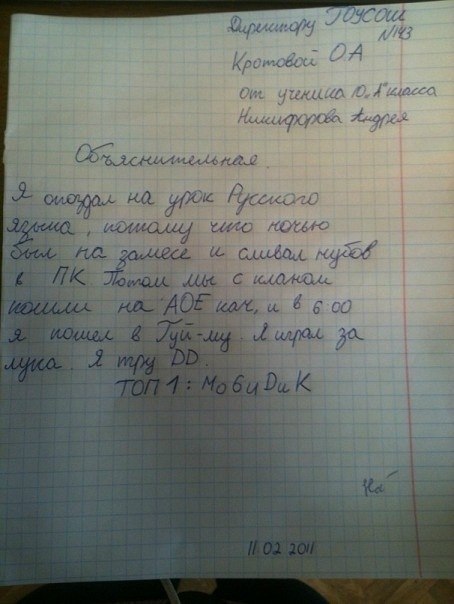 Директору ГОУСОШ
№143
Кротовой О А
от ученика 10 „А" класса
Никифорова Андрея
Объяснительная.
Я опоздал на урок Русского
языка, потому что ночью
был на замесе и сливал нубов
в ПК. Потом мы с кланом
пошли на АОЕ кач, и в 6:00
я пошел в Гуй-му. Я играл за
лука. Я тру DD.
ТОП 1: МоБцDиК
11.02.2011